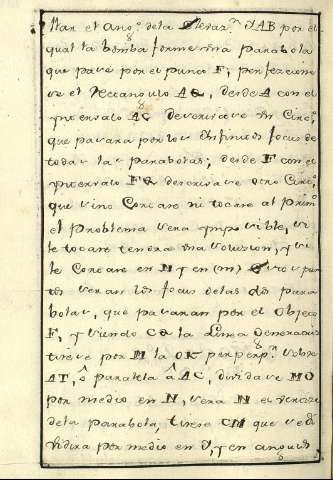 llar el ang.º de la Elevaz.n IAB por el
qual la bomba forme una parabola
que pase por el punto F; perfeccione
se el Rectangulo AQ, desde A con el
yntervalo AC describase un Circ.º
que pasara por los ynfinitos focus de
todas las parabolas; desde F con el
yntervalo FQ describase otro Circ.º
que sino Cortare ni tocare al prim.º
el Problema sera ymposible, si
le tocare tendra una solucion, y si
le Cortare en N y en (m) Estos pun
tos seran los focus de las dos para
bolas, que pasaran por el objeto
F, y siendo CQ la Linea Generatris
tirese por M la OK perpend.r sobre
AT, ô paralela â AC, dividase MO
por medio en N, sera N el vertice
de la parabola, tirese CM que se di
vidira por medio en y en angulos